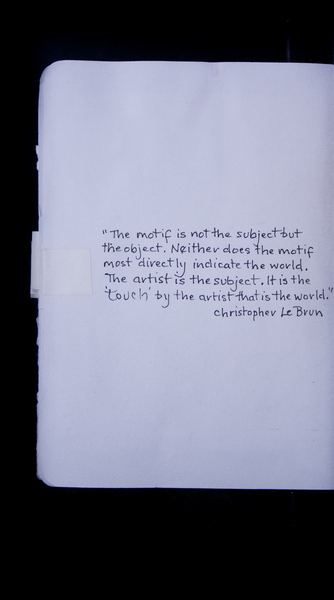 "The motif is not the subject but
the object. Neither does the motif
most directly indicate the world.
The artist is the subject. It is the
'touch' by the artist that is the world."
christopher Le Brun